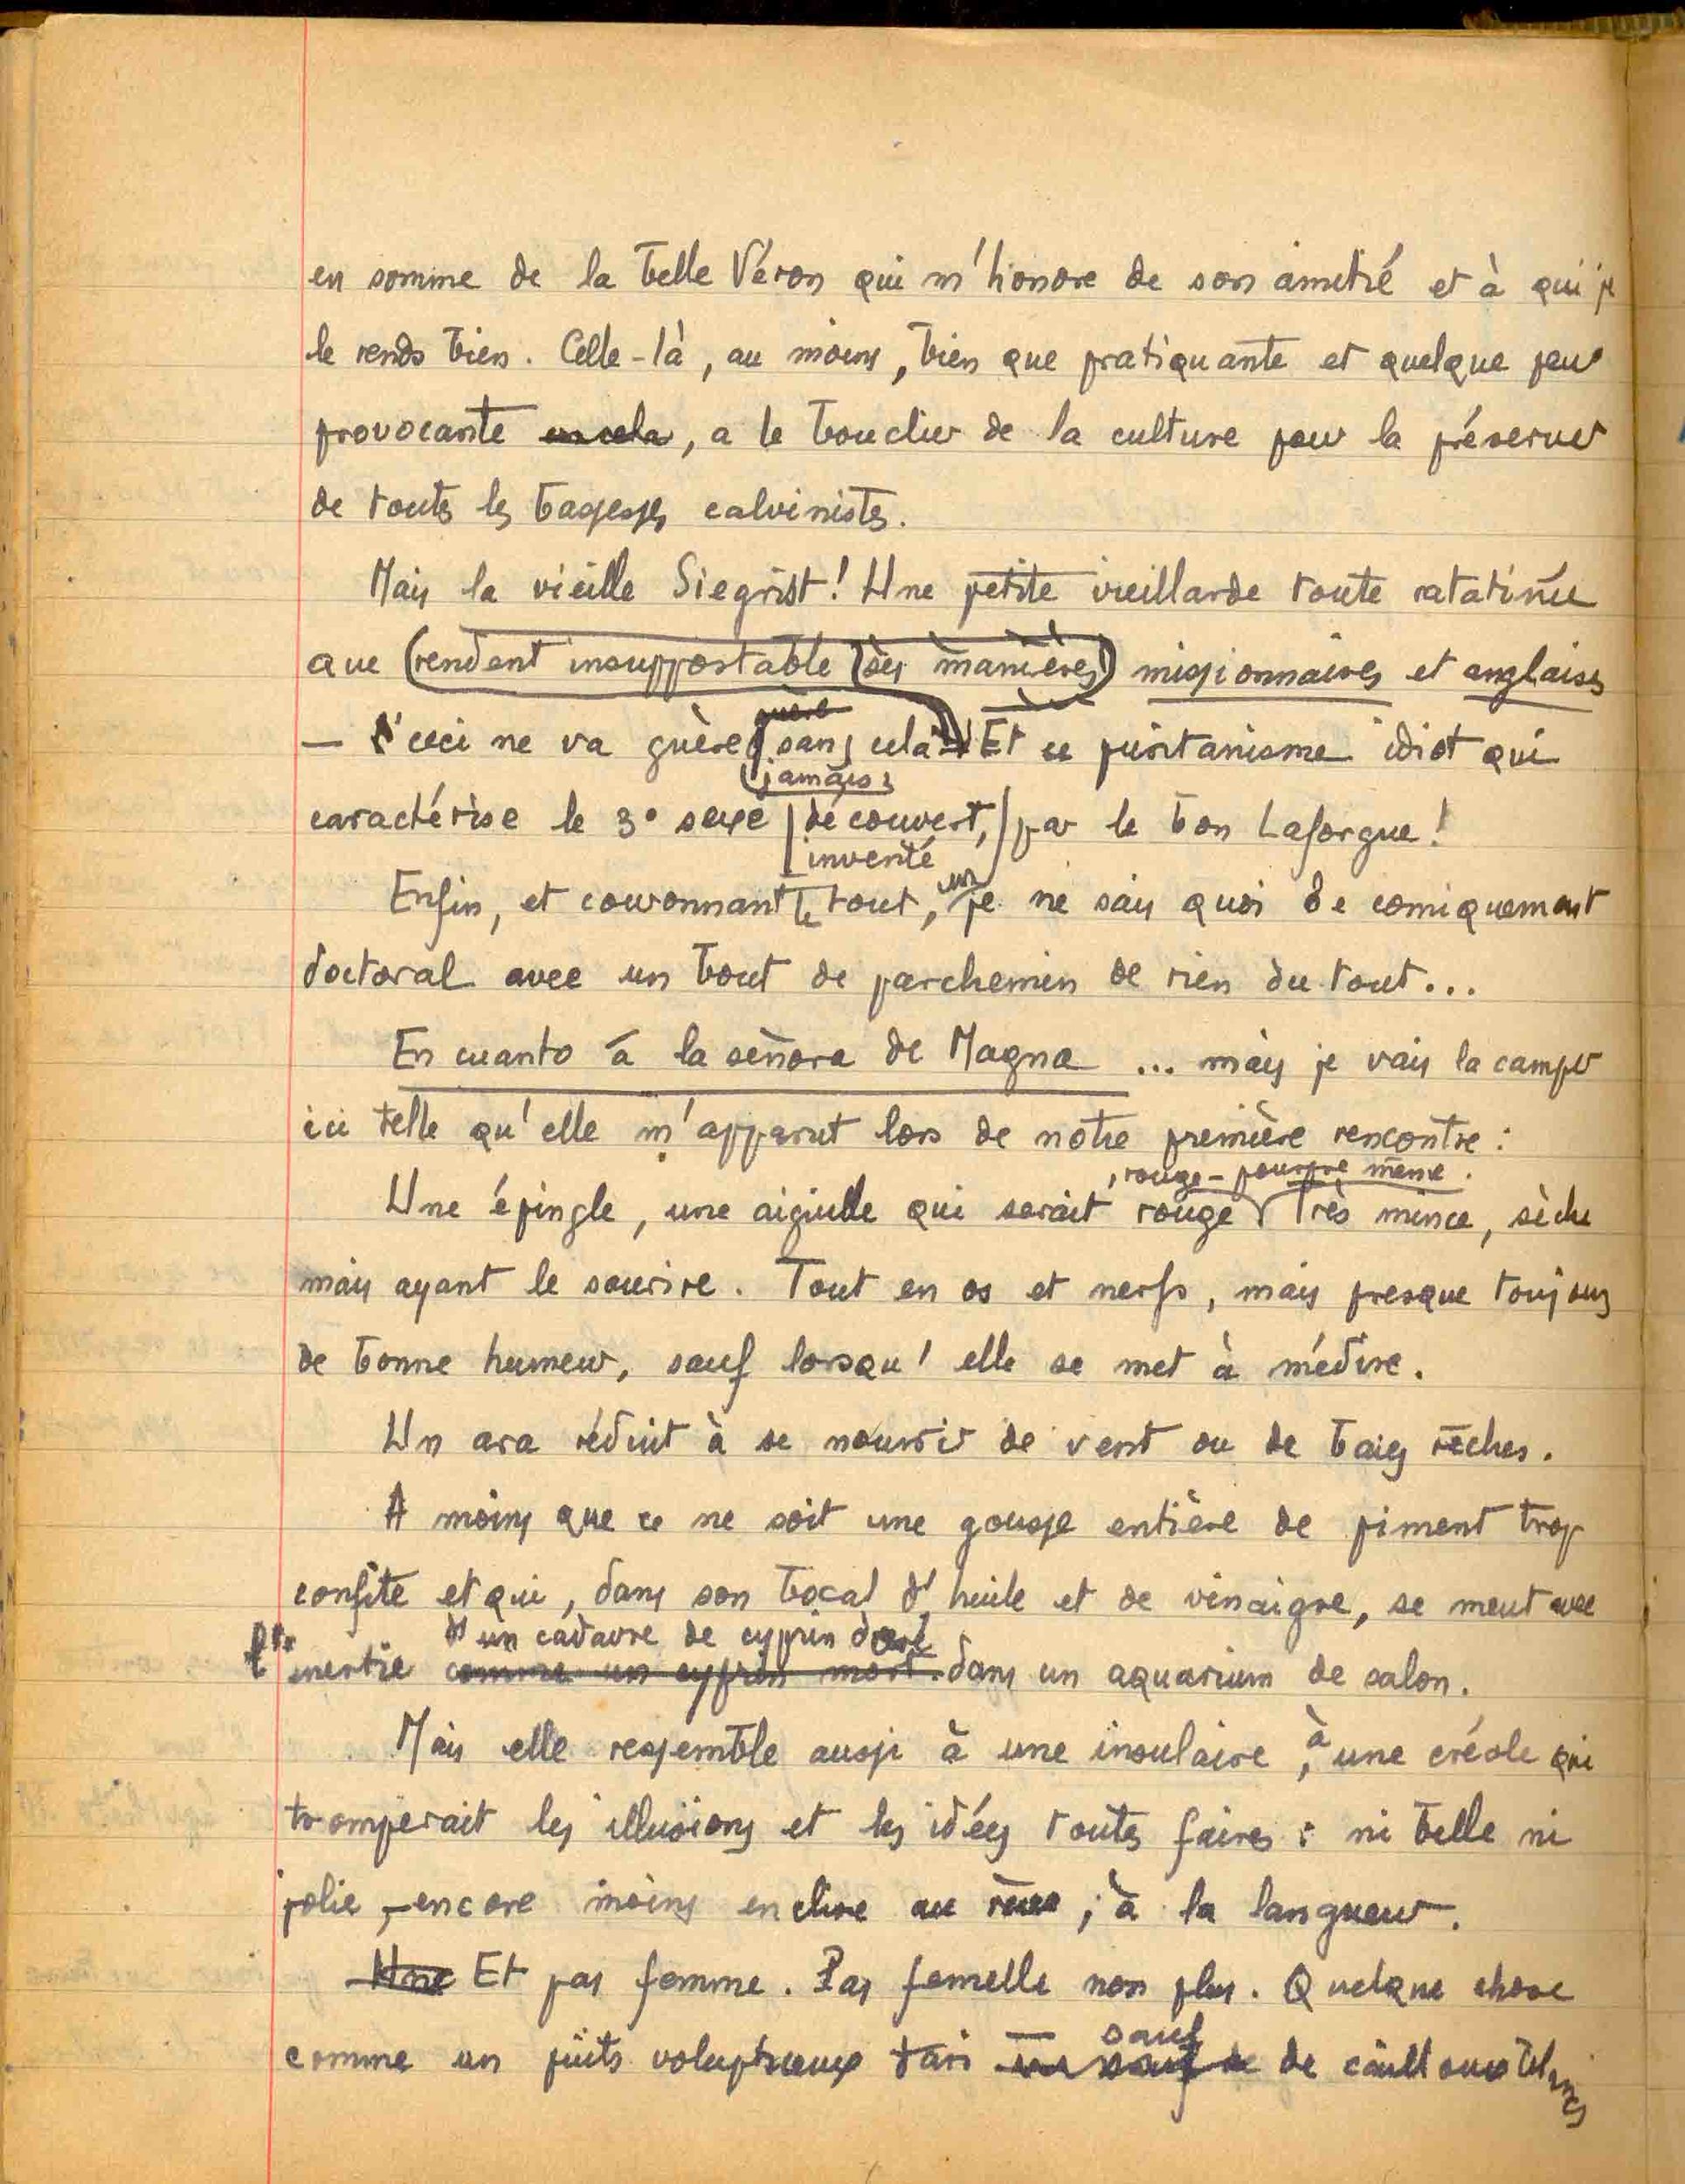 en somme de la belle Véron qui m'honore de son amitié et à qui je
le rends bien. Celle-là, au moins, bien que pratiquante et quelque peu
provocante en cela, a le bouclier de la culture pour la préserver
de toutes les bassesses calvinistes.
Mais la vieille Siegrist! Une petite vieillarde toute ratatinée
que (rendent insupportable (ses manières) missionnaires et anglaises
guère
— ceci ne va guère sans cela — Et ce puritanisme idiot qui
jamais
caractérise le 3° sexe découvert, par le bon Laforgue!
inventé
un
Enfin, et couronnant le tout, je ne sais quoi de comiquement
doctoral avec un bout de parchemin de rien du tout...
En cuanto á la señora de Magna ... mais je vais la camper
ici telle qu'elle m'apparut lors de notre première rencontre :
, rouge-pourpre même.
Une épingle, une aiguille qui serait rouge Très mince, sèche
mais ayant le sourire. Tout en os et nerfs, mais presque toujours
de bonne humeur, sauf lorsqu'elle se met à médire.
Un ara réduit à se nourrir de vent ou de baies rêches.
A moins que ce ne soit une gousse entière de piment trop
confite et qui, dans son bocal d'huile et de vinaigre, se meut avec
d'un cadavre de cyprin doré
l'inertie comme un cyprin mort. dans un aquarium de salon.
Mais elle ressemble aussi à une insulaire, à une créole qui
tromperait les illusions et les idées toutes faites : ni belle ni
jolie, encore moins encline au rêve, à la langueur.
Une Et pas femme. Pas femelle non plus. Quelque chose
sauf
comme un puits voluptueux tari sauf de de cailloux